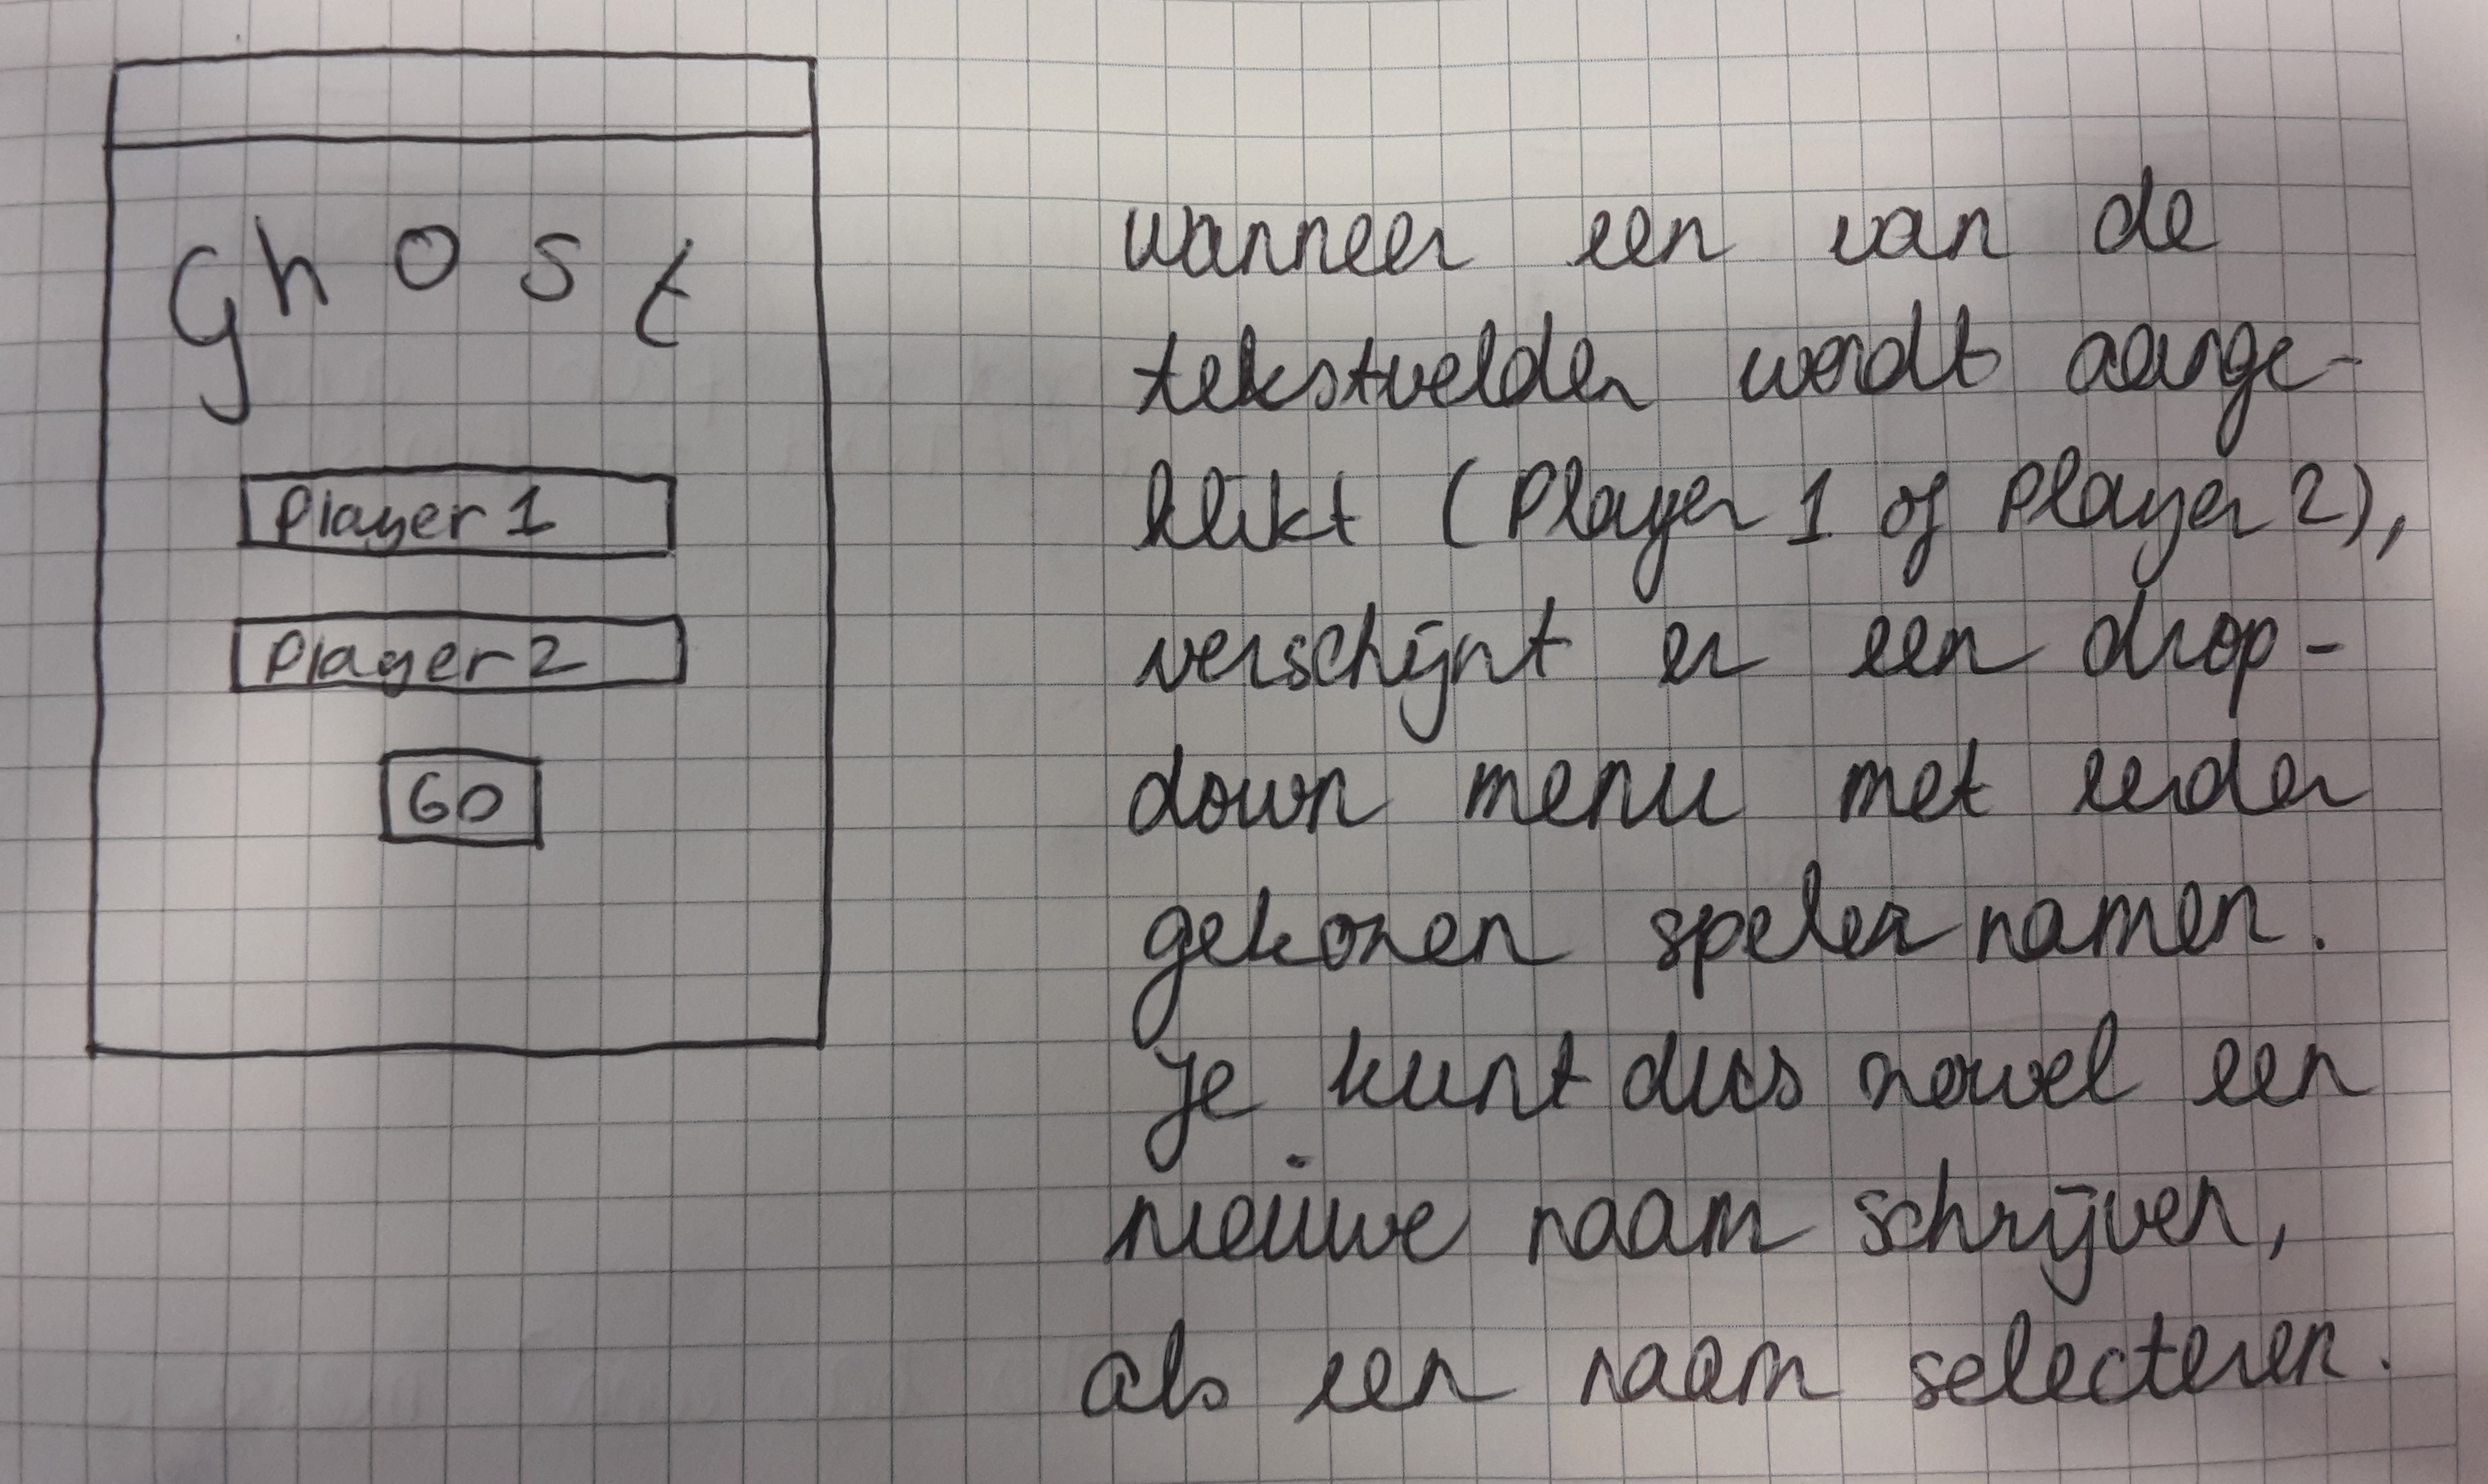 Ghost
Player 1
Player 2
GO
wanneer een van de
tekstvelden wordt aange-
klikt (Player 1 of Player 2),
verschijnt er een drop-
down menu met eerder
gekozen speler namen.
Je kunt dus zowel een
nieuwe naam schrijven,
als een naam selecteren.